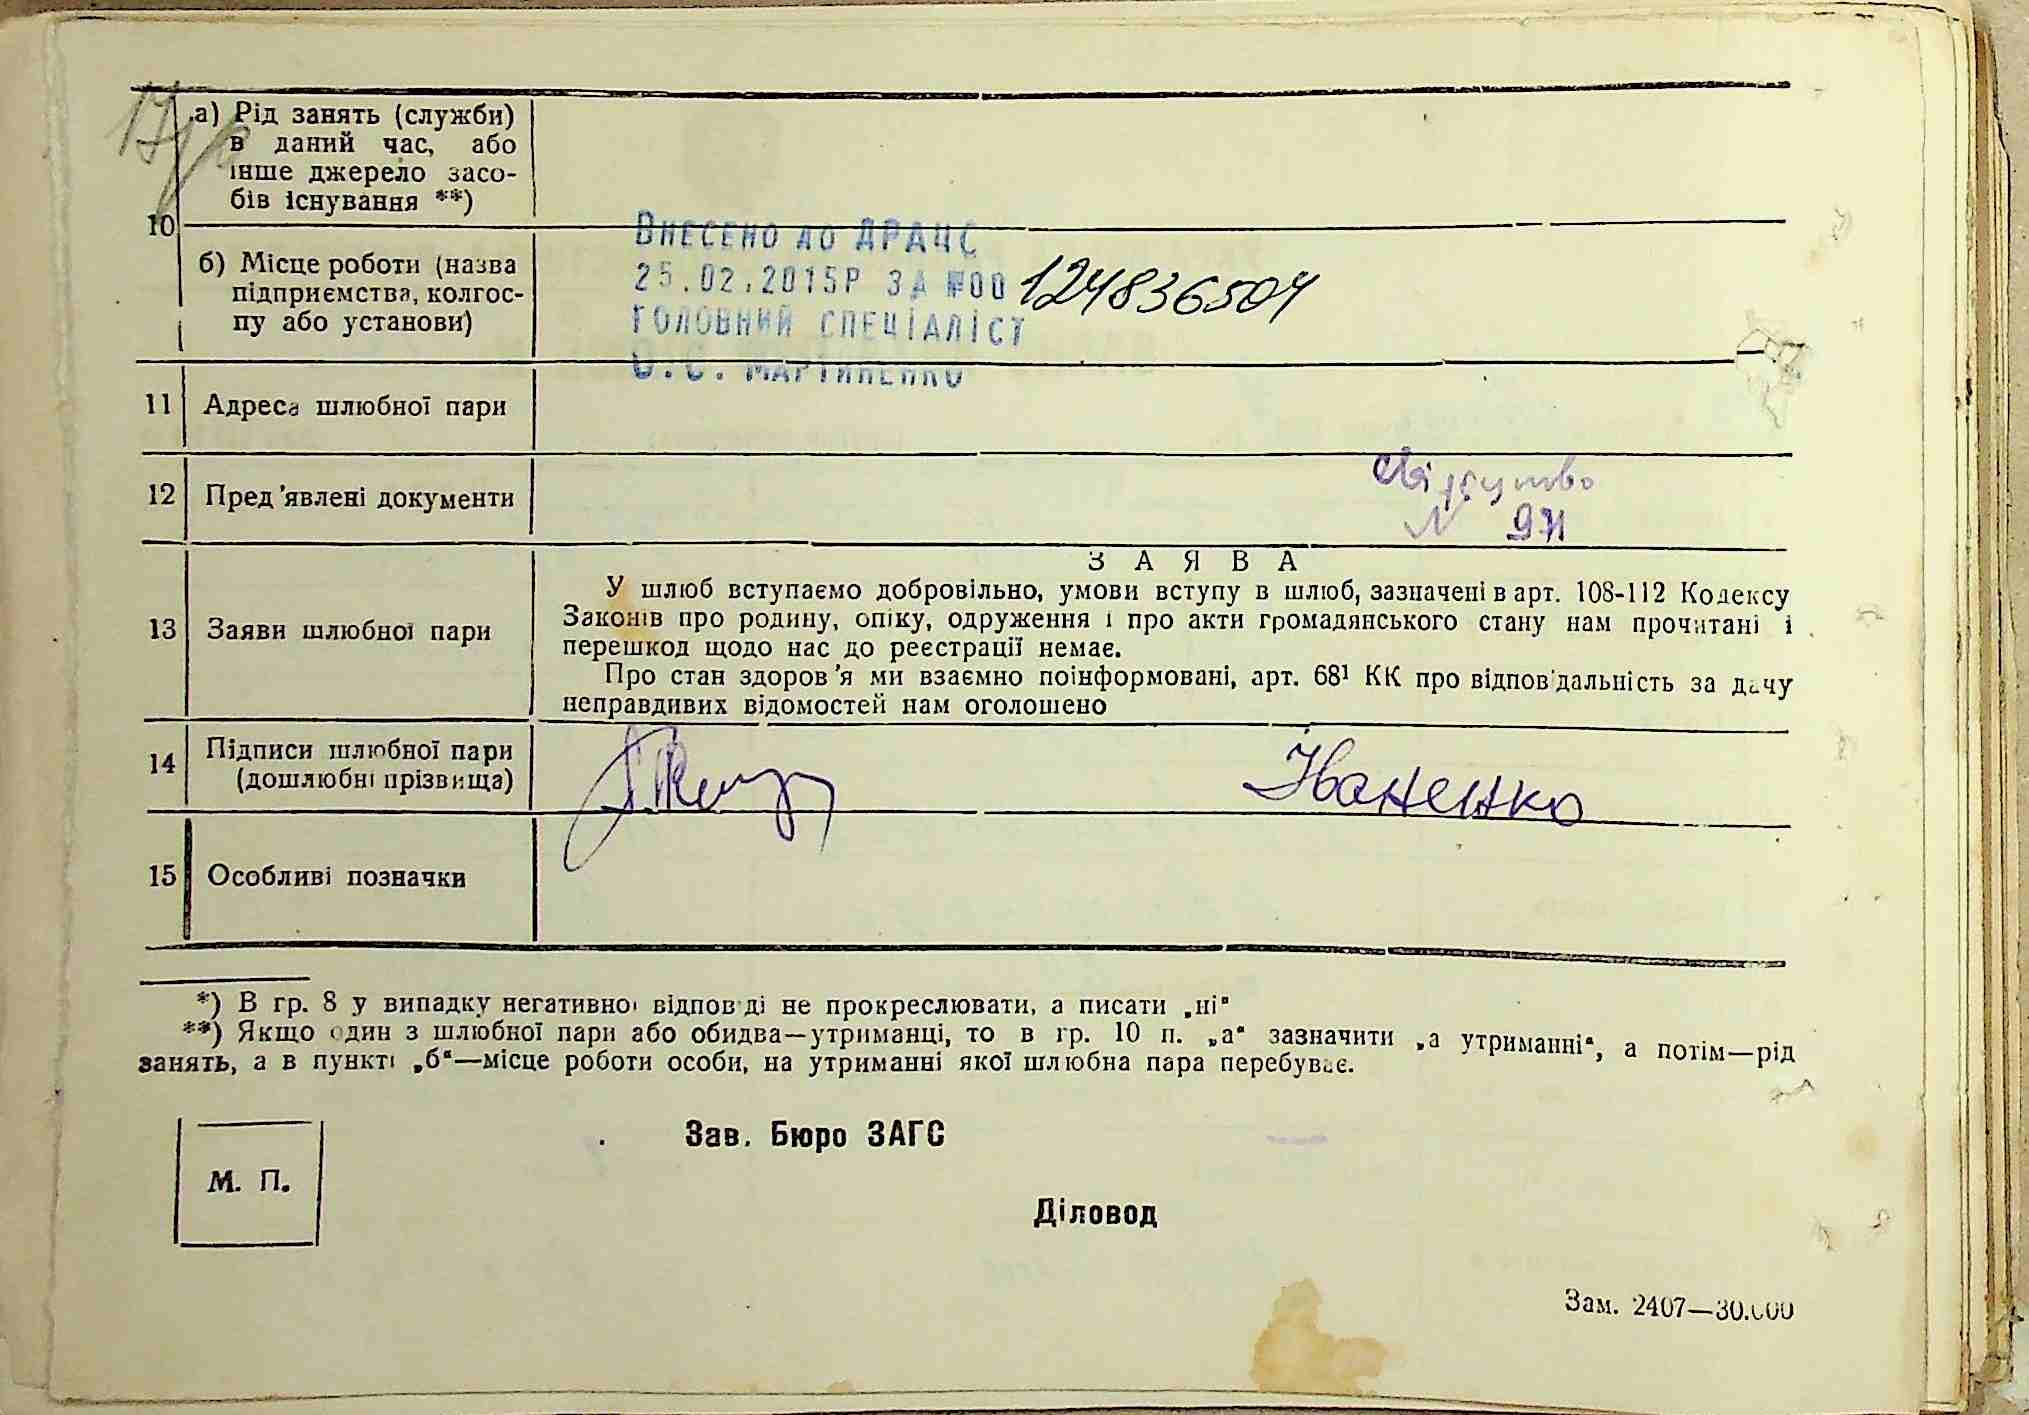 а) Рід занять (служби)
в даний час, або
інше джерело засо-
бів існування **)
10
Внесено до ДРАЦС
25.02.2015р за №00 124836504
б) Місце роботи (назва
підприємства, колгос-
пу або установи)
головний спеціаліст
О.С. Мартиненко
11 Адреса шлюбної пари
12 Пред'явлені документи
Свідоцтво
N 971
13 Заяви шлюбної пари
ЗАЯВА
У шлюб вступаємо добровільно, умови вступу в шлюб, зазначені в арт. 108-112 Кодексу
Законів про родину, опіку, одруження і про акти громадянського стану нам прочитані і
перешкод щодо нас до реєстрації немає.
Про стан здоров'я ми взаємно поінформовані, арт. 68¹ КК про відповідальність за дачу
неправдивих відомостей нам оголошено
14 Підписи шлюбної пари
(дошлюбні прізвища)
Іваненко
15 Особливі позначки
*) В гр. 8 у випадку негативної відповіді не прокреслювати, а писати „ні"
**) Якщо один з шлюбної пари або обидва—утриманці, то в гр. 10 п. „а" зазначити „а утриманні", а потім—рід
занять, а в пункті „б"—місце роботи особи, на утриманні якої шлюбна пара перебуває.
Зав. Бюро ЗАГС
М. П.
Діловод
Зам. 2407—30.000